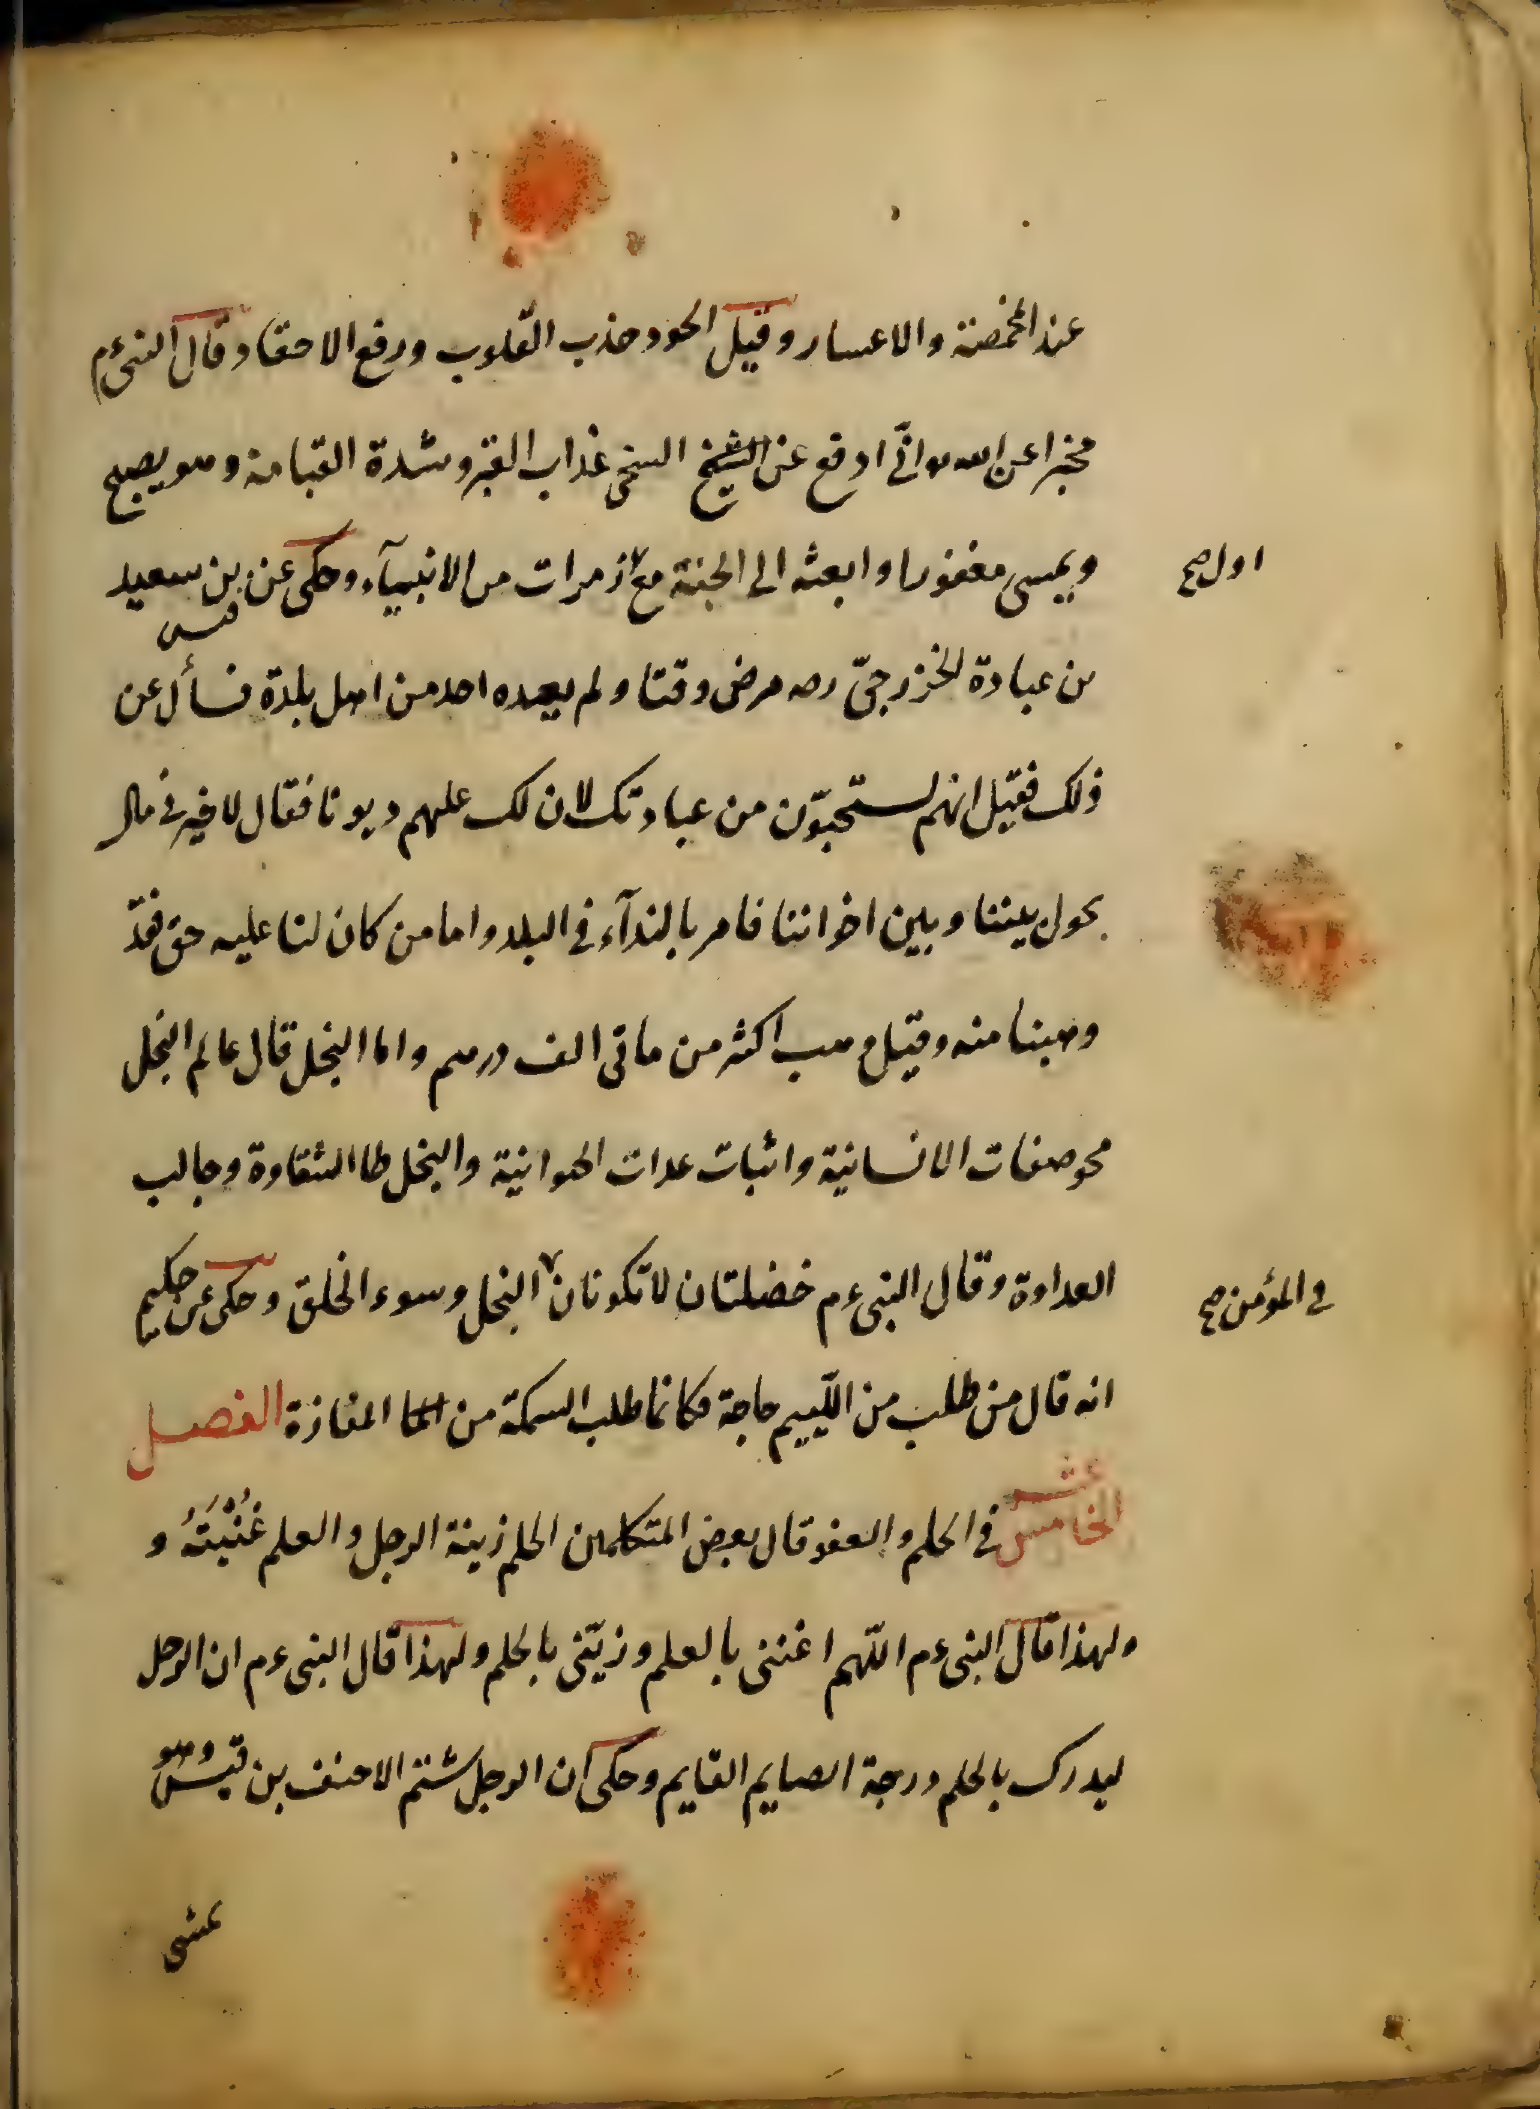 عند المخمصة والاعسار وقيل الجود جذب القلوب ورفع الاحقاد وقال النبى ءم
مخبرا عن الله انى ادفع عن الشيخ السخى عذاب القبر وشدة القيامة وهو يصبح
ويمسى مغفورا وابعثه الى الجنة مع زمرات من الانبيآء وحكى عن قيس بن سعيد
اول صح
بن عبادة الخزرجىّ رحه مرض وقتا ولم يعده احد من اهل بلدة فسأل عن
ذلك فقيل انهم يستحيون من عيادتك لان لك عليهم ديونا فقال لا خير فى مال
يحول بيننا وبين اخواننا فامر بالندآء فى البلد واما من كان لنا عليه حق فقد
وهبنا منه وقيل وهب اكثر من ماتى الف درهم واما البخل قال عالم البخل
محو صفات الانسانية واثبات عدات الحيوانية والبخل طا الشقاوة وجالب
العداوة وقال النبى ءم خضلتان لا تكونان البخل وسوء الخلق وحكى عن حكيم
فى المؤمن صح
انه قال من طلب من اللّييم حاجة فكانما طلب السمكة من المفازة الفصل
الخامس عشر فى الحلم والعفو قال بعض المتكلمين الحلم زينة الرجل والعلم غُنْيَتَهُ و
ولهذا قال النبى ءم اللّهم اغننى بالعلم وزيّنى بالحلم ولهذا قال النبى ءم ان الرجل
ليدرك بالحلم درجة الصايم القايم وحكى ان الرجل شتم الاحنف بن قيس وهو
يمشى